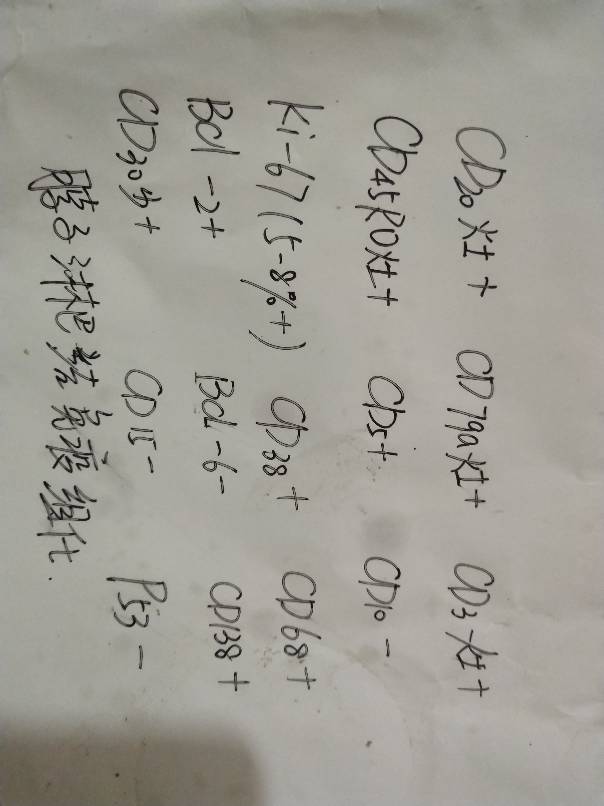 CD20灶+ CD79a灶+ CD3灶+
CD45RO灶+ CD5+ CD10-
Ki-67(5-8%+) CD38+ CD68+
Bcl-2+ Bcl-6- CD138+
CD30少+ CD15- P53-
淋巴结免疫组化.